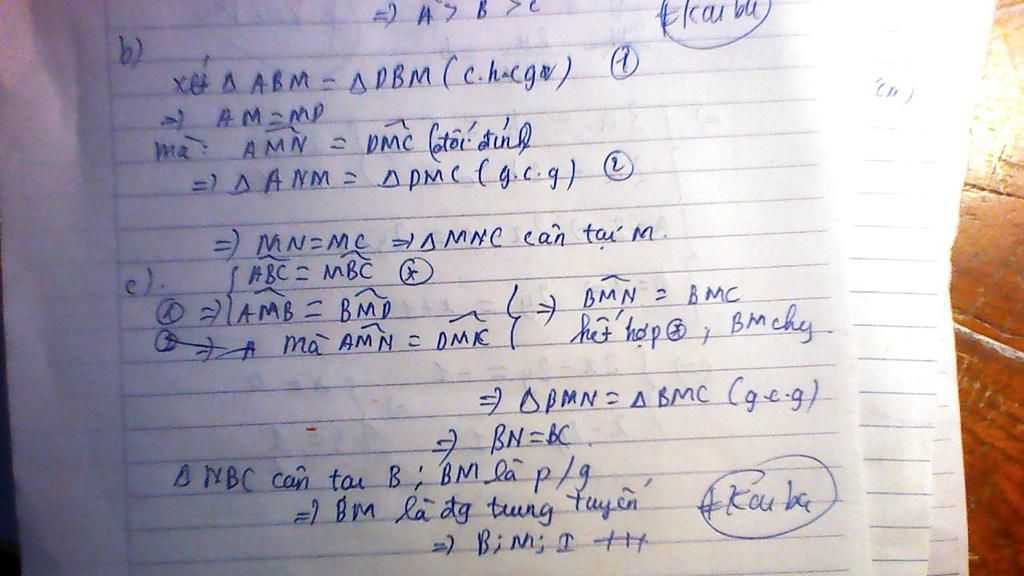 =) A > B > C
#Kaiba
b)
xét Δ ABM = Δ DBM (c.h-cgv) ①
=) AM = MD
mà: AMN = DMC (đối đỉnh)
=) Δ ANM = Δ DMC (g.c.g) ②
=) MN = MC => Δ MNC cân tại M.
c). { ABC = MBC (*)
① => AMB = BMD } => BMN = BMC
mà AMN = DMC kết hợp (*); BM chg
=) Δ BMN = Δ BMC (g.c.g)
=) BN = BC.
Δ NBC cân tại B; BM là p/g
=) BM là đg trung tuyến
=) B; M; I
#Kaiba